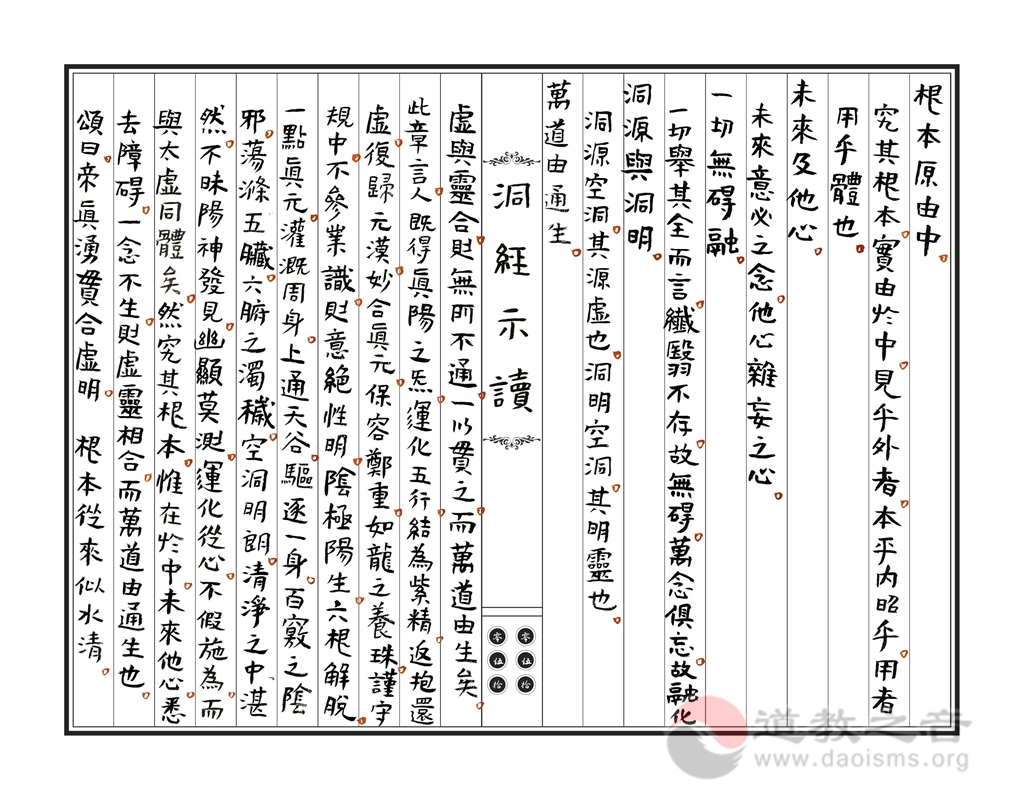 根本原由中。
究其根本。實由於中。見乎外者。本乎內。昭乎用者。
用乎體也。
未來及他心。
未來意必之念。他心雜妄之心。
一切無碍融。
一切舉其全而言。纖翳不存。故無碍。萬念俱忘。故融化。
洞源與洞明。
洞源空洞。其源虛也。洞明空洞。其明靈也。
萬道由通生。
洞經示讀
零零
伍伍
拾拾
虛與靈合。則無所不通。一以貫之。而萬道由生矣。
此章言人既得眞陽之炁。運化五行。結為紫精。返抱還
虛。復歸元漠。妙合眞元。保容鄭重。如龍之養珠。謹守
規中。不參業識。則意絕性明。陰極陽生。六根解脫。
一點眞元。灌溉周身。上通天谷。驅逐一身。百竅之陰
邪。蕩滌五臟。六腑之濁穢。空洞明朗。清淨之中、湛
然。不昧陽神發見。幽顯莫測。運化從心。不假施為。而
與太虛同體矣。然究其根本。惟在於中。未來他心。悉
去障碍。一念不生。則虛靈相合。而萬道由通生也。
頌曰。帝眞湧貫合虛明。 根本從來似水清。
道教之音
www.daoisms.org